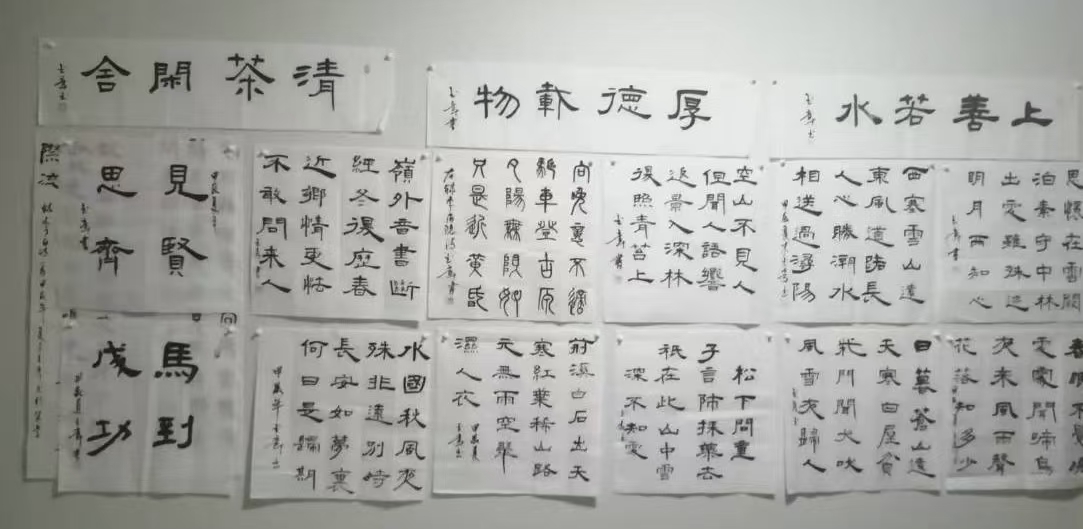 清茶閑舍
厚德載物
上善若水
見賢
思齊
嶺外音書斷
經冬復歷春
近鄉情更怯
不敢問来人
向晚意不適
驅車登古原
夕陽無限好
只是近黃昏
空山不見人
但聞人語響
返景入深林
復照青苔上
西塞雲山遠
東風道路長
人心勝潮水
相送過潯陽
思懷在雲闕
泊素守中林
出處雖殊迹
明月兩知心
馬到
成功
水國秋風夜
殊非遠別時
長安如夢裏
何日是歸期
甲辰年
荊溪白石出天
寒紅葉稀山路
元無雨空翠
濕人衣
甲辰夏
松下問童
子言師採藥去
衹在此山中雲
深不知處
日暮蒼山遠
天寒白屋貧
柴門聞犬吠
風雪夜歸人
春眠不覺曉
處處聞啼鳥
夜来風雨聲
花落知多少